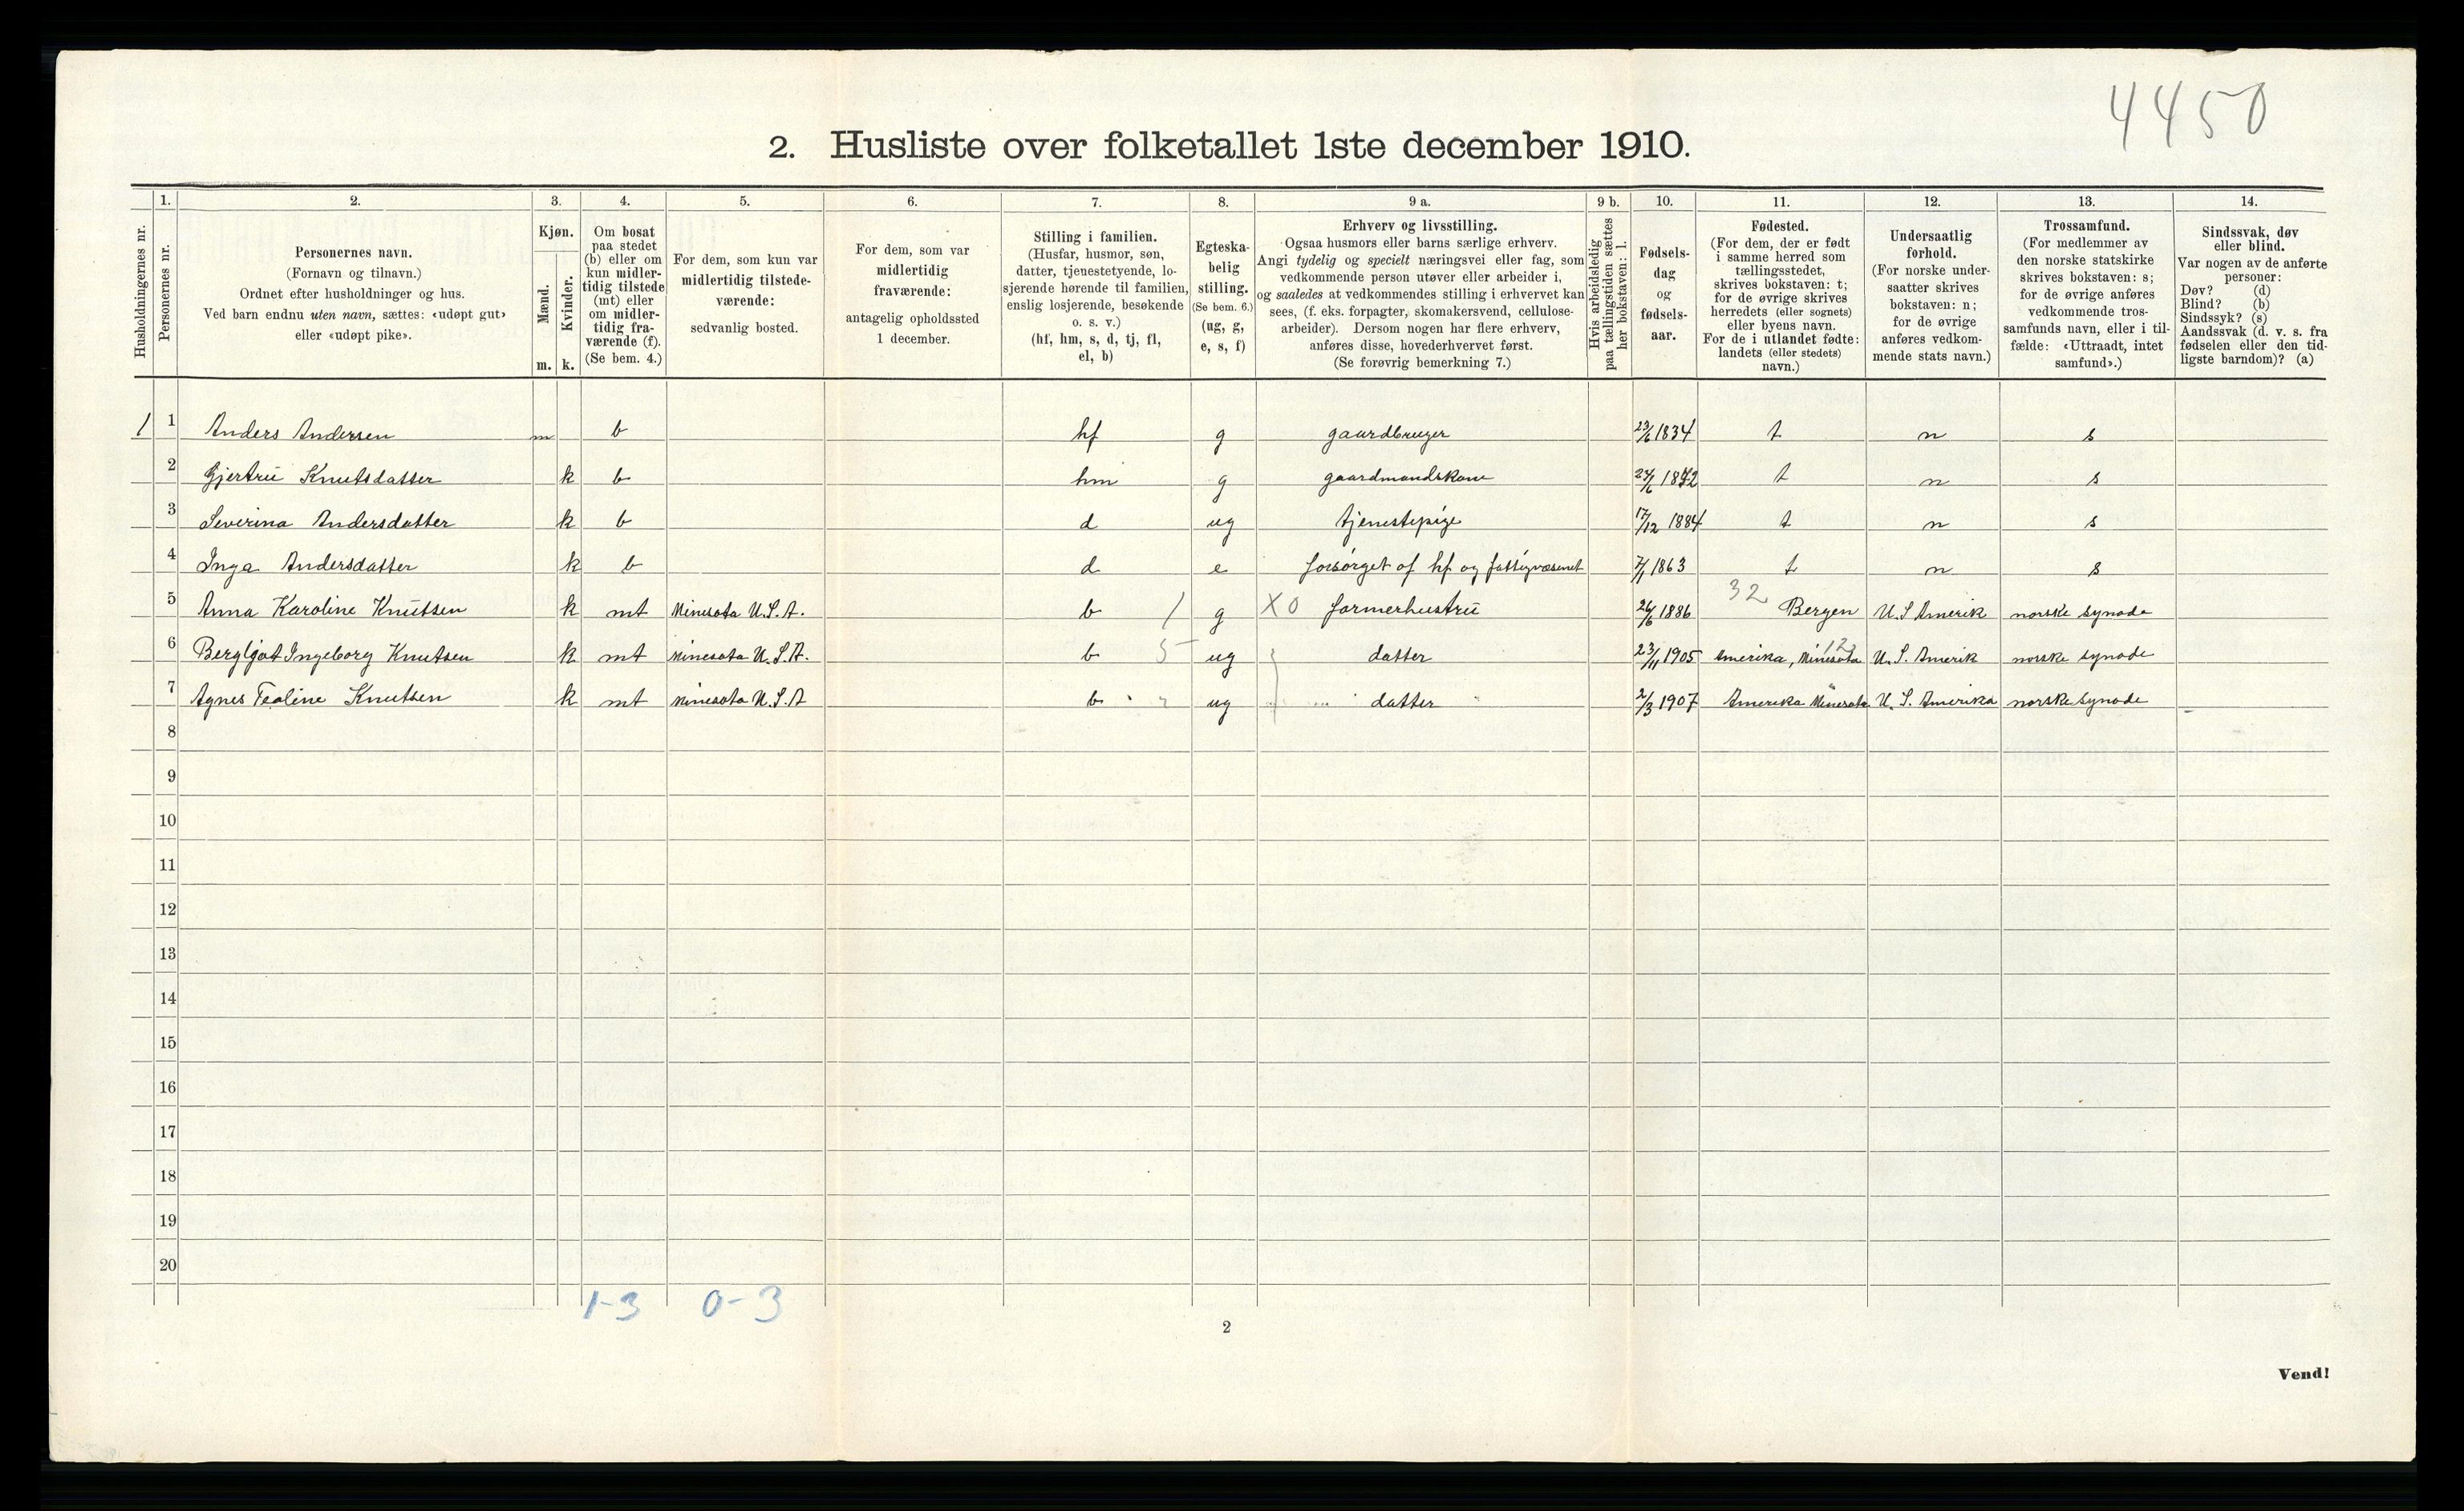 4450
2. Husliste over folketallet 1ste december 1910.
Husholdningernes nr.
1.
Personernes nr.
2.
Personernes navn.
(Fornavn og tilnavn.)
Ordnet efter husholdninger og hus.
Ved barn endnu uten navn, sættes: «udøpt gut»
eller «udøpt pike».
3.
Kjøn.
Mænd.
Kvinder.
m. k.
4.
Om bosat
paa stedet
(b) eller om
kun midler-
tidig tilstede
(mt) eller
om midler-
tidig fra-
værende (f).
(Se bem. 4.)
5.
For dem, som kun var
midlertidig tilstede-
værende:
sedvanlig bosted.
6.
For dem, som var
midlertidig
fraværende:
antagelig opholdssted
1 december.
7.
Stilling i familien.
(Husfar, husmor, søn,
datter, tjenestetyende, lo-
sjerende hørende til familien,
enslig losjerende, besøkende
o. s. v.)
(hf, hm, s, d, tj, fl,
el, b)
8.
Egteska-
belig
stilling.
(Se bem. 6.)
(ug, g,
e, s, f)
9 a.
Erhverv og livsstilling.
Ogsaa husmors eller barns særlige erhverv.
Angi tydelig og specielt næringsvei eller fag, som
vedkommende person utøver eller arbeider i,
og saaledes at vedkommendes stilling i erhvervet kan
sees, (f. eks. forpagter, skomakersvend, cellulose-
arbeider). Dersom nogen har flere erhverv,
anføres disse, hovederhvervet først.
(Se forøvrig bemerkning 7.)
9 b.
Hvis arbeidsledig
paa tællingstiden sættes
her bokstaven: l.
10.
Fødsels-
dag
og
fødsels-
aar.
11.
Fødested.
(For dem, der er født
i samme herred som
tællingsstedet,
skrives bokstaven: t;
for de øvrige skrives
herredets (eller sognets)
eller byens navn.
For de i utlandet fødte:
landets (eller stedets)
navn.)
12.
Undersaatlig
forhold.
(For norske under-
saatter skrives
bokstaven: n;
for de øvrige
anføres vedkom-
mende stats navn.)
13.
Trossamfund.
(For medlemmer av
den norske statskirke
skrives bokstaven: s;
for de øvrige anføres
vedkommende tros-
samfunds navn, eller i til-
fælde: «Uttraadt, intet
samfund».)
14.
Sindssvak, døv
eller blind.
Var nogen av de anførte
personer:
Døv? (d)
Blind? (b)
Sindssyk? (s)
Aandssvak (d. v. s. fra
fødselen eller den tid-
ligste barndom)? (a)
1 1 Anders Andersen m b hf g gaardbruger 23/6 1834 t n s
2 Gjertrü Knutsdatter k b hm g gaardmandskone t n s
3 Severina Andersdatter k b d ug tjenestepige 17/12 1884 t n s
4 Inga Andersdatter k b d e forsörget af hf og fattigvæsenet 7/1 1863 t n s
5 Anna Karoline Knutsen k mt Minesota U.S.A. b 1 g X0 farmerhustrü 26/6 1886 32 Bergen U.S Amerik norske synode
6 Bergljot Ingeborg Knutsen k mt Minesota U.S.A. b 5 ug datter 23/11 1905 Amerika, Minesota 12 U.S. Amerik norske synode
7 Agnes Tealine Knutsen k mt Minesota U.S.A b " ug datter 2/3 1907 Amerika Minesota U.S. Amerika norske synode
8
9
10
11
12
13
14
15
16
17
18
19
20
1-3 0-3
2
Vend!